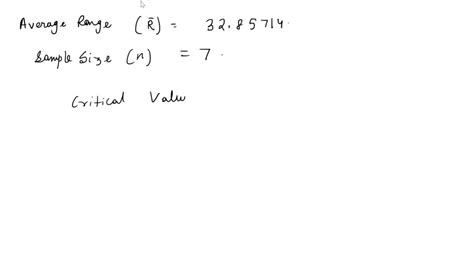 Average Range (R̄) = 32.85714.
Sample Size (n) = 7.
Critical Value